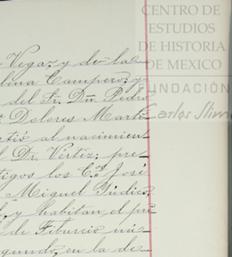 CENTRO DE
ESTUDIOS
DE HISTORIA
DE MEXICO
FUNDACIÓN
Carlos Slim
Vega; y de la
lina Campero; y
del Sr. Dn. Pedro
Dolores Marti
tió al nacimien
Dr. Vertiz; pre
tigos los Cs. José
Miguel Yudico
y habitan el pri
de Tiburcio nú
segundo en la de